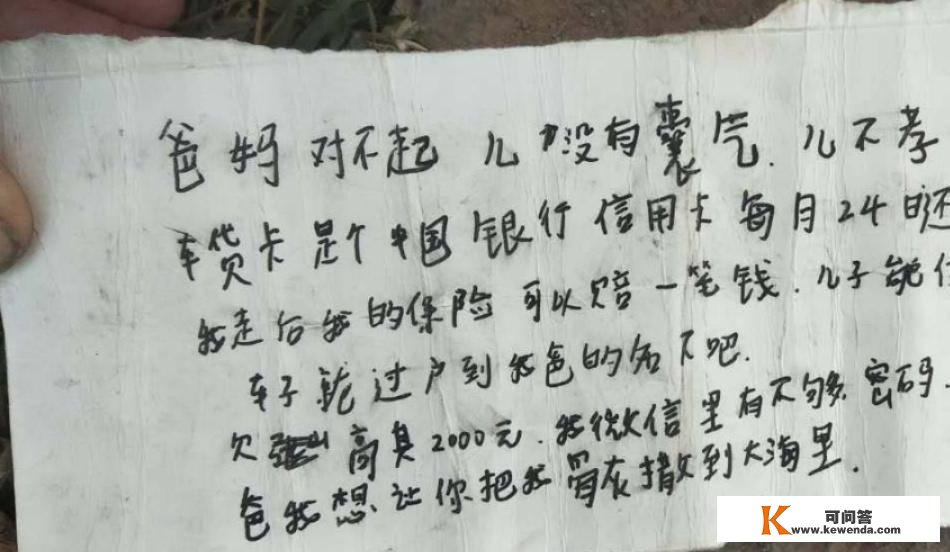 爸妈对不起 儿 没有囊气. 儿不孝
车贷卡是个中国银行信用卡每月24日还
我走后我的保险可以赔一笔钱. 儿子能
车子能过户到我爸的名下吧.
欠 高具2000元. 我微信里有不够 密码
爸我想让你把我骨灰撒到大海里.
K 可问答
www.kewenda.com